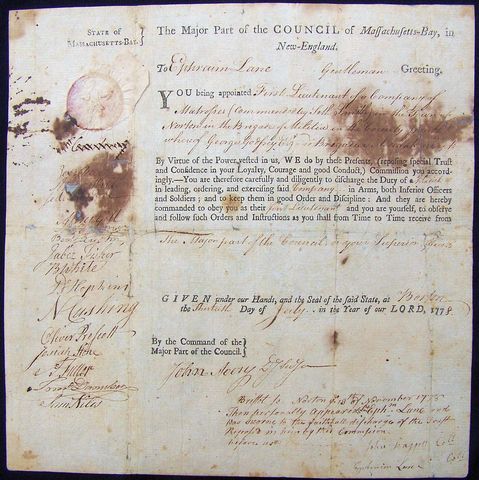 STATE of
MASSACHUSETTS-BAY.
The Major Part of the COUNCIL of Massachusetts-Bay, in
New-England,
To Ephraim Lane Gentleman Greeting.
YOU being appointed First Lieutenant of a Company of
Matrosses Commanded by Seth Smith of the Town of
Norton in the Brigade of Militia in the County of
whereof George Godfrey Esq. is Brigadier
By Virtue of the Power vested in us, WE do by these Presents, (reposing special Trust
and Confidence in your Loyalty, Courage and good Conduct,) Commission you accord-
ingly.—You are therefore carefully and diligently to discharge the Duty of a
in leading, ordering, and exercising said Company in Arms, both Inferior Officers
and Soldiers; and to keep them in good Order and Discipline: And they are hereby
commanded to obey you as their first Lieutenant and you are yourself, to observe
and follow such Orders and Instructions as you shall from Time to Time receive from
The Major part of the Council or your Superior Officers
Jabez Fisher
B White
Hopkins
N Cushing
Oliver Prescott
Josiah Stone
Fuller
Sam Niles
GIVEN under our Hands, and the Seal of the said State, at Boston
the Day of July in the Year of our LORD, 1778.
By the Command of the
Major Part of the Council.
John Avery Dy Secy
Norton November 1778
Then personally Appeared Eph<sup>m</sup> Lane and
was sworne to the faithfull discharge of the Trust
Reposed in him by this Commission
before us
Ephraim Lane